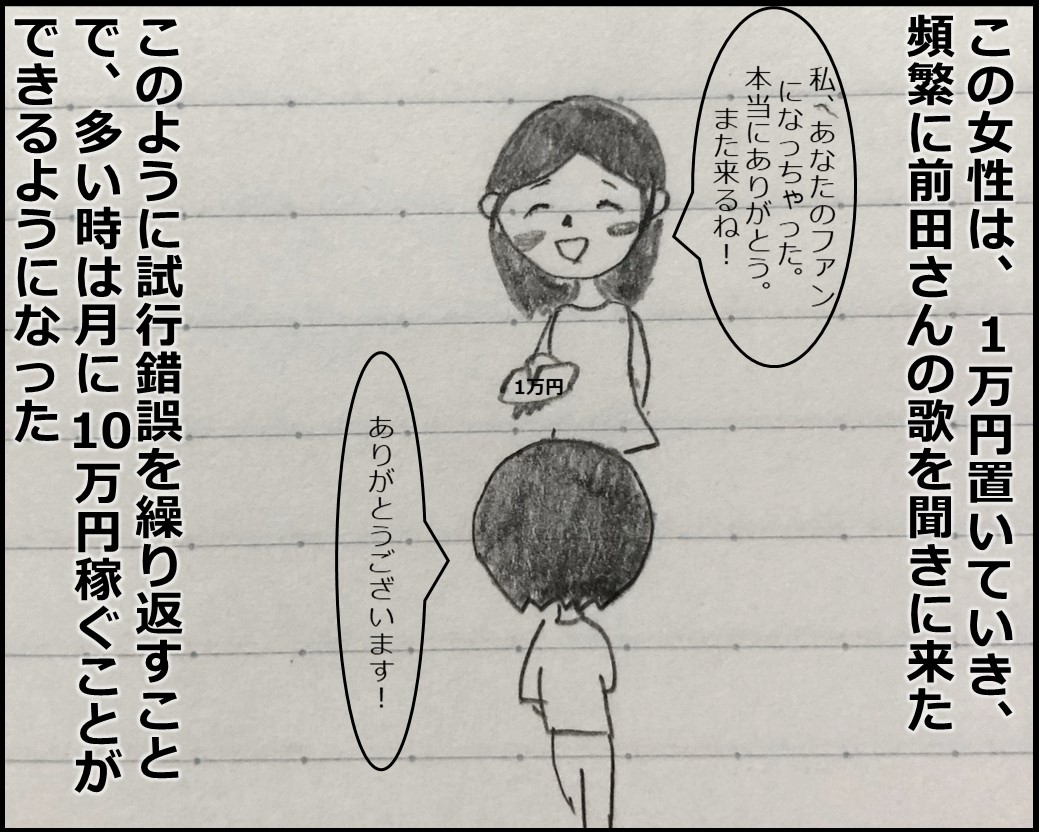 この女性は、1万円置いていき、
頻繁に前田さんの歌を聞きに来た
私、あなたのファン
になっちゃった。
本当にありがとう。
また来るね！
1万円
ありがとうございます！
このように試行錯誤を繰り返すこと
で、多い時は月に10万円稼ぐことが
できるようになった